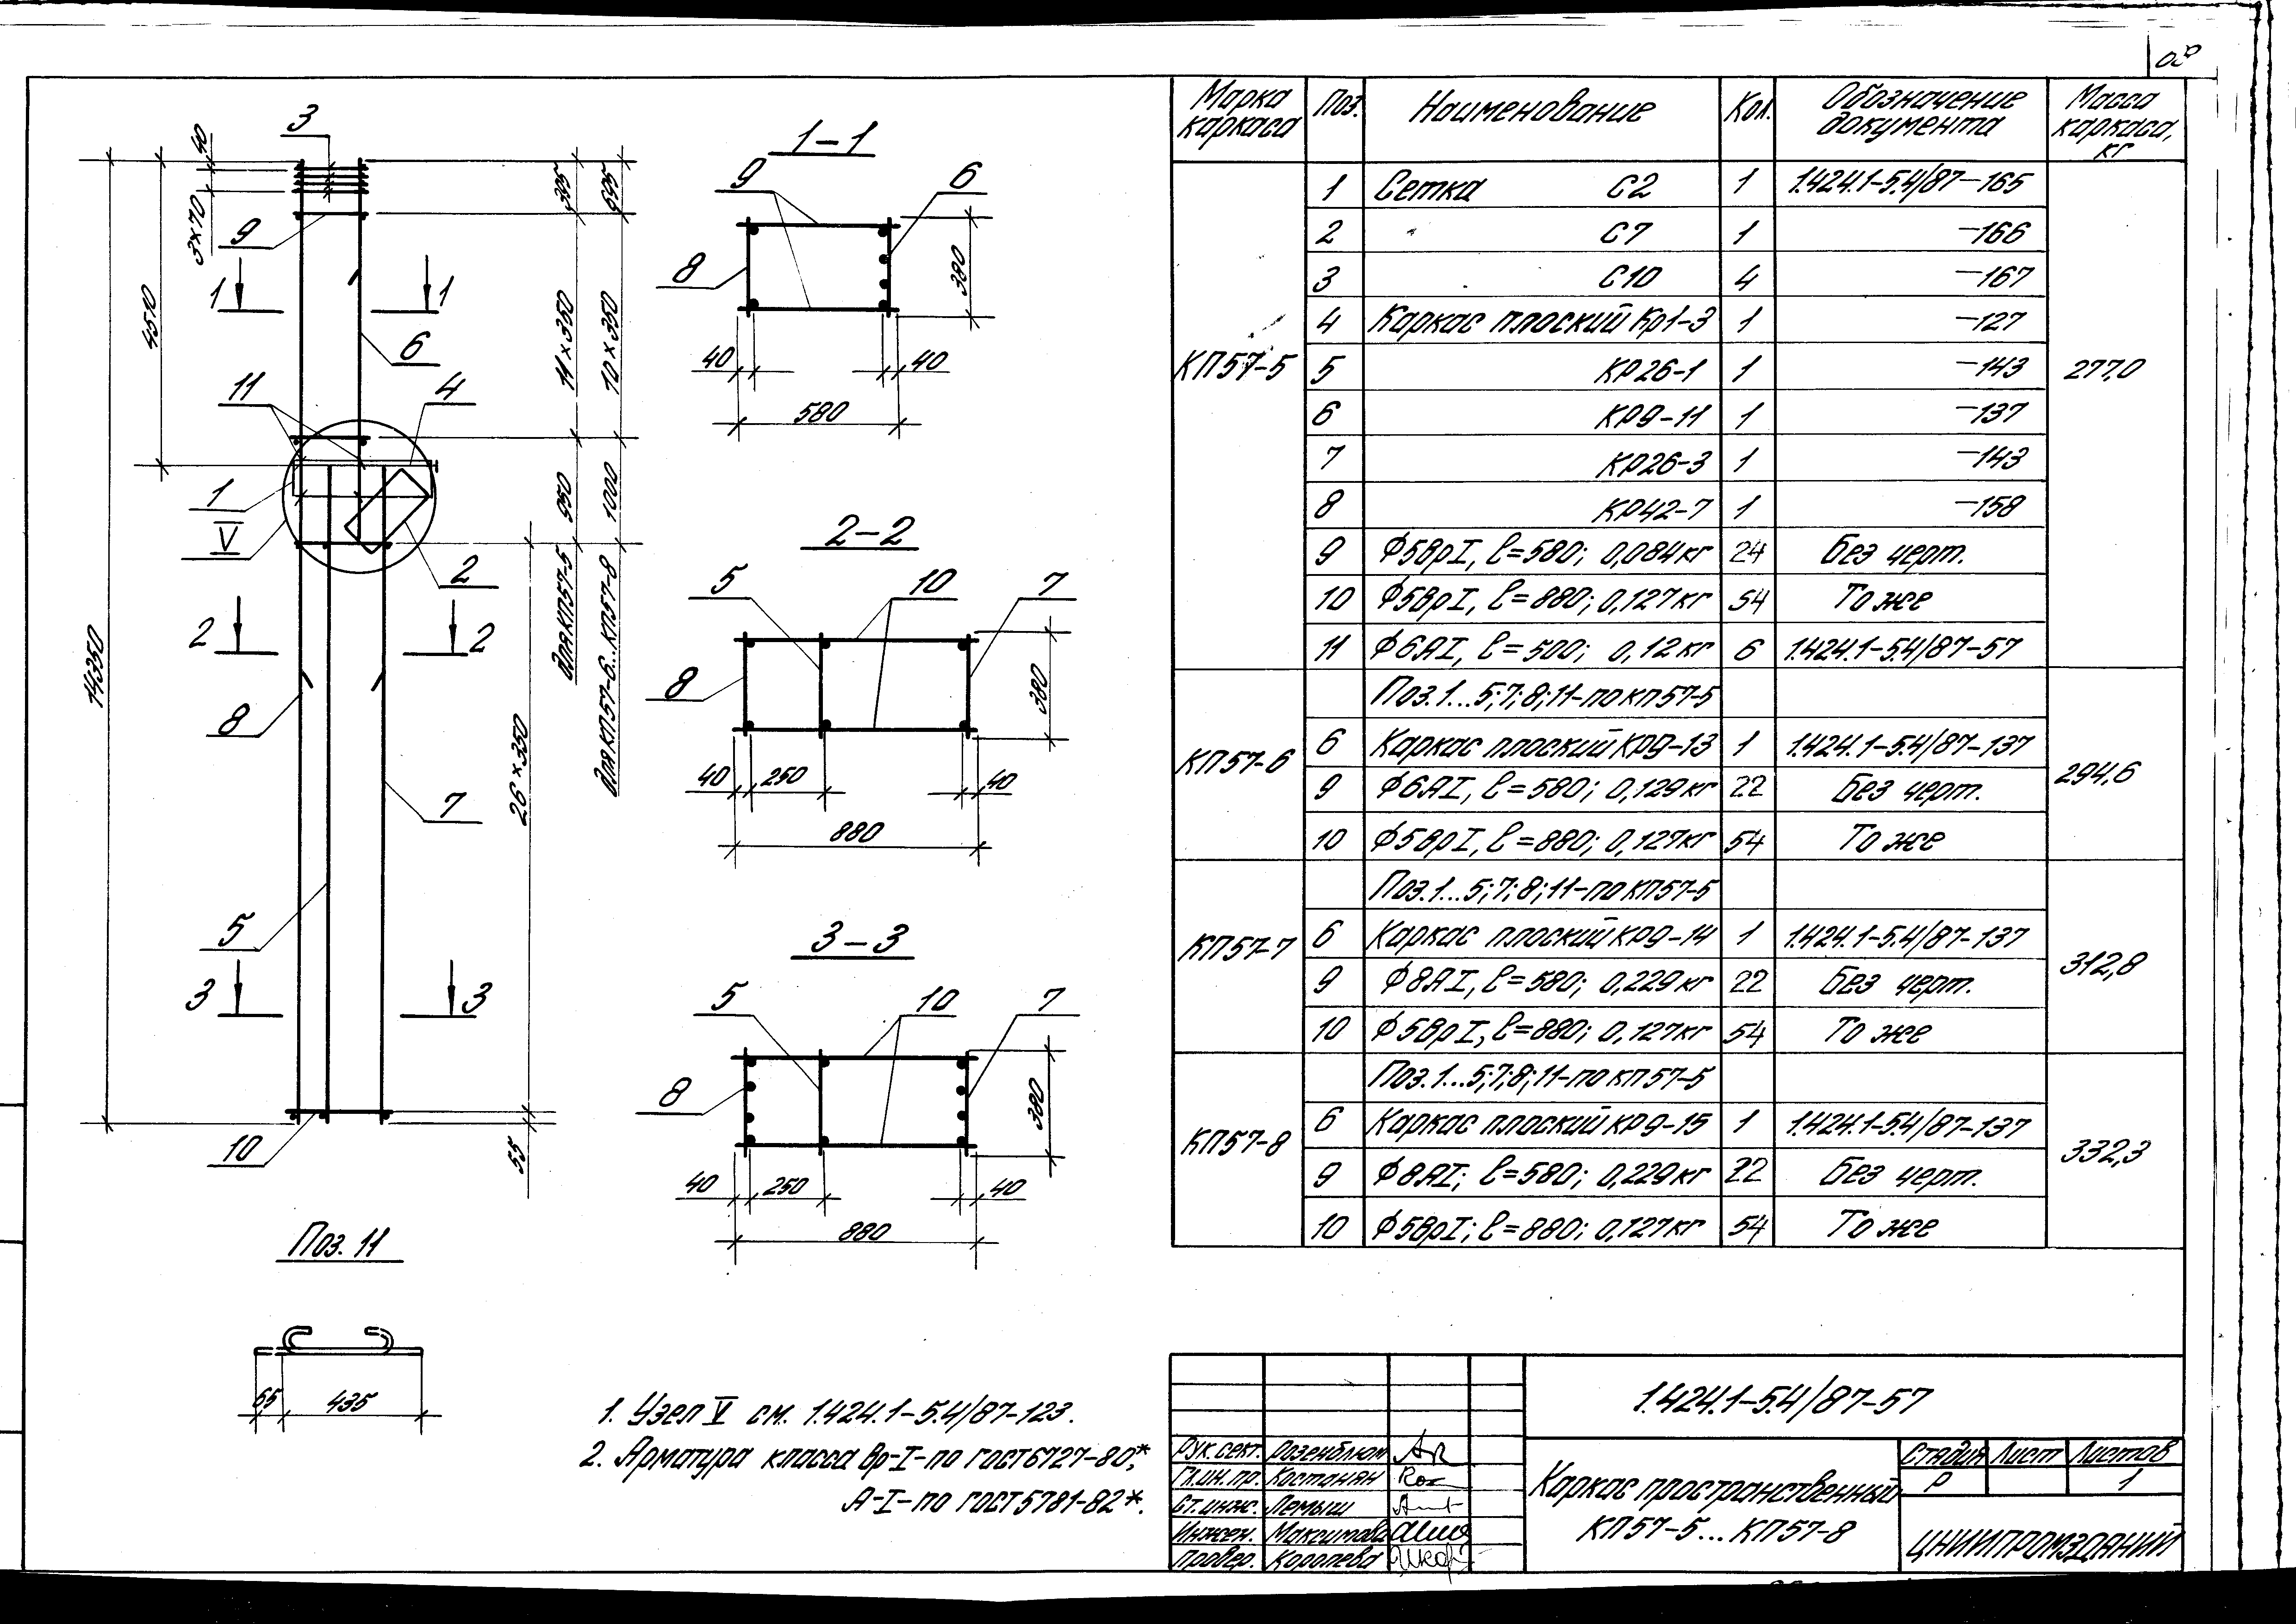 3
40
3×70
9
1 1
4510
6
11
4
1
V
2
14350
2 2
8
7
26×350
5
3 3
10
55
395
695
11×350
10×350
950
1000
для КП57-5
для КП57-6...КП57-8
Поз. 11
65 435
1-1
9 6
8
380
40 40
580
2-2
5 10 7
8
380
40 250 40
880
3-3
5 10 7
8
380
40 250 40
880
1. Узел V см. 1.424.1-5.4/87-123.
2. Арматура класса Вр-I-по ГОСТ 6727-80*,
А-I-по ГОСТ 5781-82*.
Марка каркаса Поз. Наименование Кол. Обозначение документа Масса каркаса, кг
КП57-5 277,0
1 Сетка С2 1 1.424.1-5.4/87-165
2 С7 1 -166
3 С10 4 -167
4 Каркас плоский Кр1-3 1 -127
5 КР26-1 1 -143
6 КР9-11 1 -137
7 КР26-3 1 -143
8 КР42-7 1 -158
9 Ф5ВрI, ℓ=580; 0,084кг 24 Без черт.
10 Ф5ВрI, ℓ=880; 0,127кг 54 То же
11 Ф6АI, ℓ=500; 0,12кг 6 1.424.1-5.4/87-57
КП57-6 294,6
Поз.1...5;7;8;11-по КП57-5
6 Каркас плоский КР9-13 1 1.424.1-5.4/87-137
9 Ф6АI, ℓ=580; 0,129кг 22 Без черт.
10 Ф5ВрI, ℓ=880; 0,127кг 54 То же
КП57-7 312,8
Поз.1...5;7;8;11-по КП57-5
6 Каркас плоский КР9-14 1 1.424.1-5.4/87-137
9 Ф8АI, ℓ=580; 0,229кг 22 Без черт.
10 Ф5ВрI, ℓ=880; 0,127кг 54 То же
КП57-8 332,3
Поз.1...5;7;8;11-по КП57-5
6 Каркас плоский КР9-15 1 1.424.1-5.4/87-137
9 Ф8АI; ℓ=580; 0,229кг 22 Без черт.
10 Ф5ВрI; ℓ=880; 0,127кг 54 То же
1.424.1-5.4/87-57
Рук. сект. Розенблюм
Гл.ин.пр. Костанян
Ст.инж. Лемыш
Инжен. Максимова
Провер. Королева
Каркас пространственный
КП57-5...КП57-8
Стадия Лист Листов
Р 1
ЦНИИПРОМЗДАНИЙ